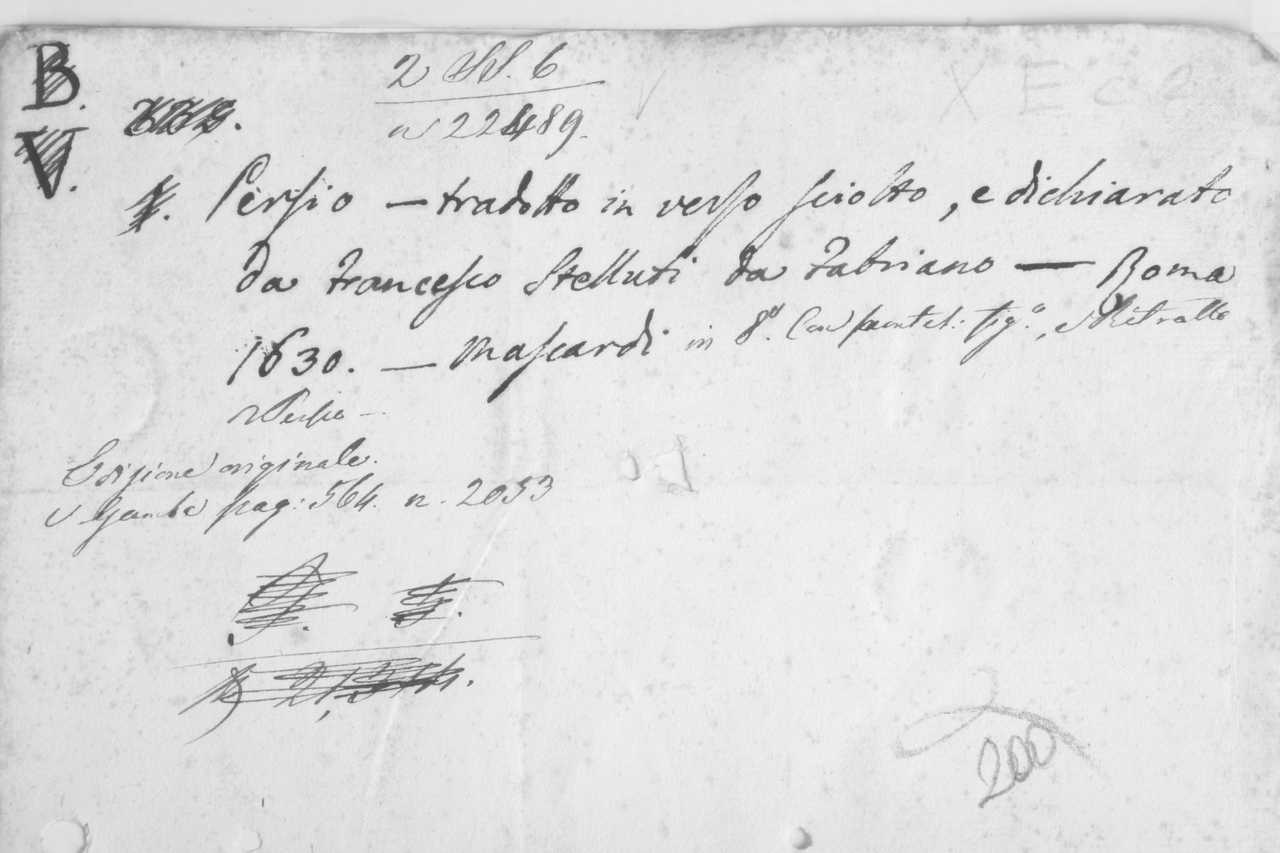 B.
V.
2 SS. 6
n 22489.
X E C 2
Persio – tradotto in verso sciolto, e dichiarato
da Francesco Stelluti da Fabriano — Roma
1630. — Mascardi in 8.º Con fig.ª, e Ritratto
Persio –
Edizione originale.
V Gamba pag: 564. n. 2053
200